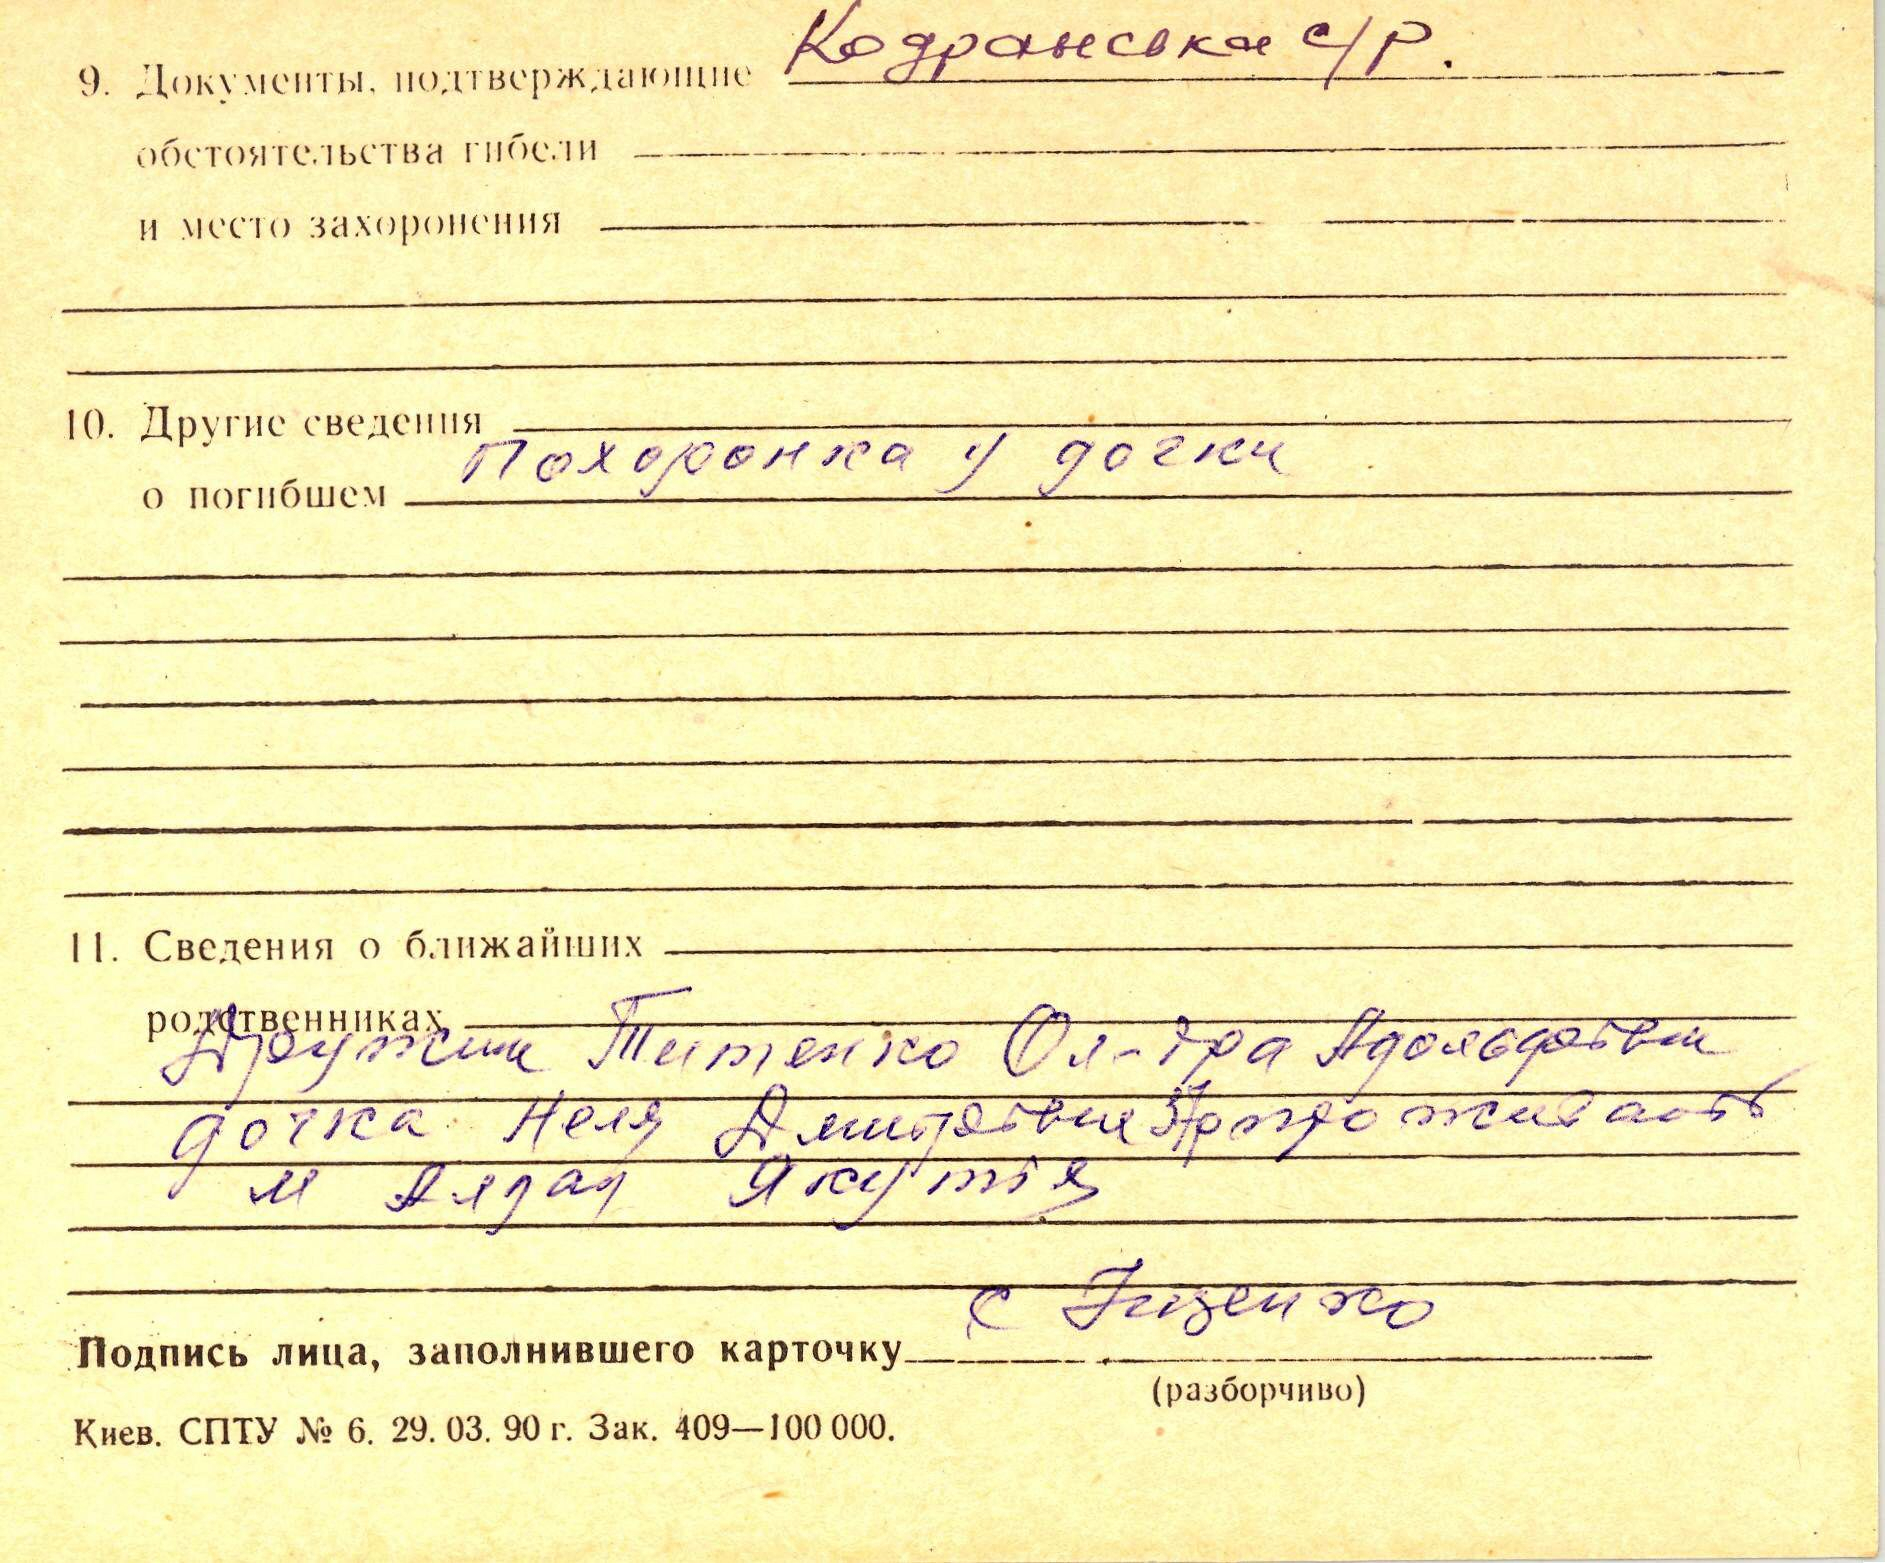 Кодранська с/р.
9. Документы, подтверждающие
обстоятельства гибели
и место захоронения
10. Другие сведения
Похоронка у дочки
о погибшем
11. Сведения о ближайших
родственниках
Дружина Титенко Ол-дра Адольфовна
дочка Неля Дмитровна
м Алдан Якутія
Подпись лица, заполнившего карточку
(разборчиво)
Киев. СПТУ № 6. 29. 03. 90 г. Зак. 409—100 000.